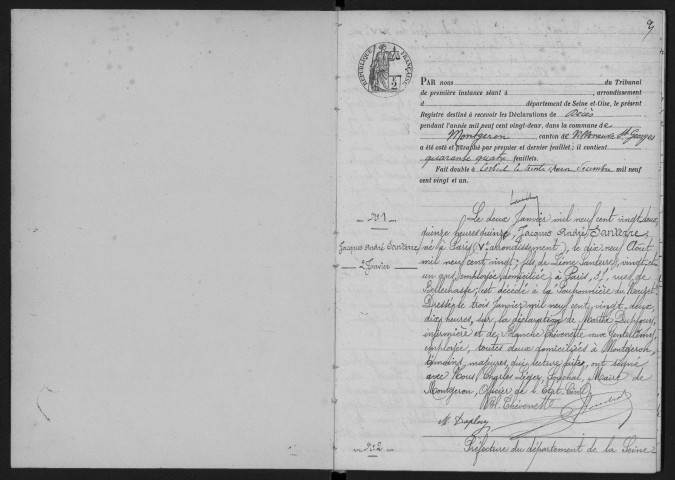 RÉPUBLIQUE FRANÇAISE
PAR nous du Tribunal
de première instance séant à , arrondissement
d département de Seine-et-Oise, le présent
Registre destiné à recevoir les Déclarations de Décès
pendant l'année mil neuf cent vingt-deux, dans la commune de
Montgeron, canton de Villeneuve St Georges
a été coté et paraphé par premier et dernier feuillet; il contient
quarante quatre feuillets.
Fait double à Corbeil le trente Décembre mil neuf
cent vingt et un.
N° 1
Jacques André Santerre
2 Janvier
Le deux Janvier mil neuf cent vingt deux
quinze heures quinze, Jacques André Santerre
né à Paris (V° arrondissement), le dix neuf Août
mil neuf cent vingt; fils de Santerre, vingt et
un ans, employée, domiciliée à Paris, rue de
Bellechasse, est décédé à la Pouponnière
Dressé le trois Janvier mil neuf cent vingt deux
dix heures, sur la déclaration de Marthe
infirmière et de Blanche Thévenette
employée, toutes deux domiciliées à Montgeron,
témoins, majeures, qui, lecture faite, ont signé
avec Nous, Charles Léger, Maire de
Montgeron, Officier de l'Etat Civil.
Bl. Thévenette
N° 2
Préfecture du département de la Seine